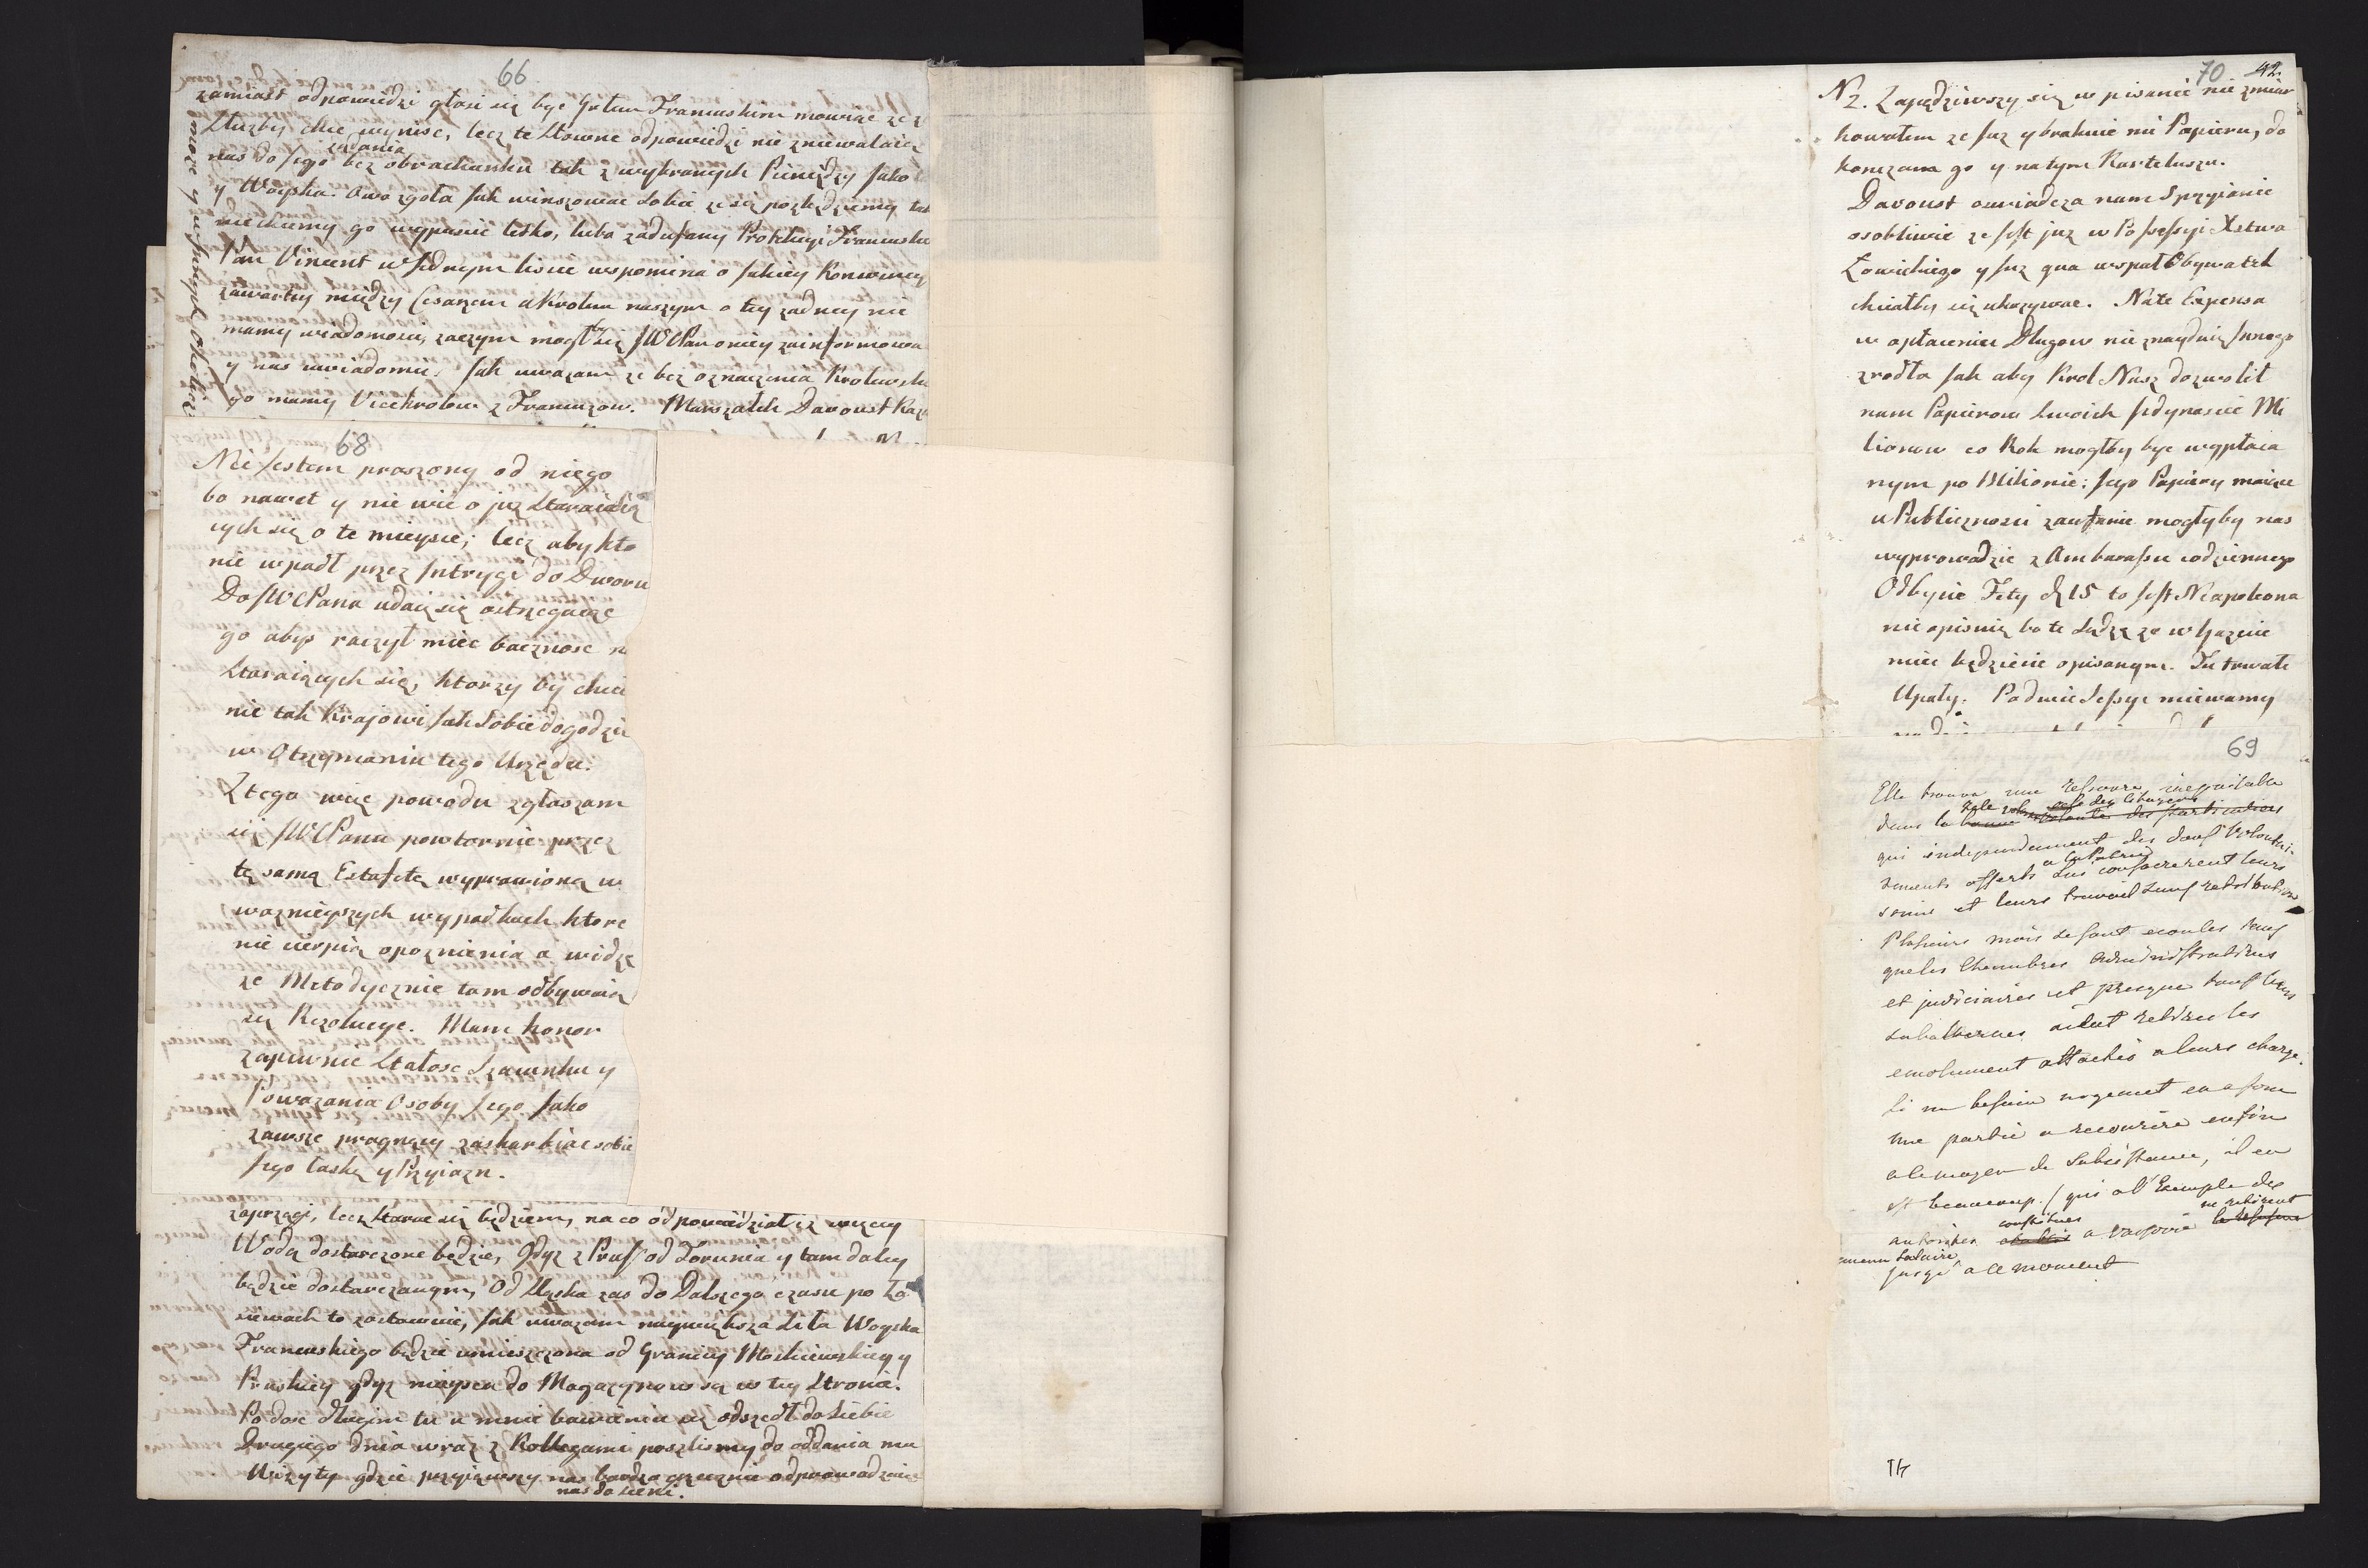 66
zamiast odpowiedzi głosi się byc Gotem Francuskim mowiąc ze z
Służby chce wynisc, lecz te słowne odpowiedzi nie zniewalaią
zadania
nas do Jego bez obrachunku tak z wybranych Pieniędzy Jako
y Woyska. Owo zgoła Jak winszowac Sobie ze się pozbędziemy tak
nie chcemy go wypuscic letko, luba zadufany Protekcyi Francuski
Pan Vincent w Jednym liscie wspomina o Jakiey Konwencyi
zawartey między Cesarzem a Krolem naszym o tey zadney nie
mamy wiadomosci, zaczym mogł by się JWWPan oniey zainformowa
y nas uwiadomic. Jak uwazam ze bez oznaczenia Krolewski
go mamy Vicekrolow z Francuzow. Marszałek Davoust Kaz
68
Nie Jestem proszony od niego
bo nawet y nie wie o juz Staraiąią
cych się o te mieysce; lecz aby kto
nie wpadł przez Intrygi do Dworu
Do JWWPana udaię się ostrzegaiąc
go abys raczył miec bacznosc n
Staraiących się, ktorzy by chcie
nie tak Krajowi Jak Sobie dogodzic
w Otrzymaniu tego Urzędu.
Z tego więc powodu zgłaszam
się JWWPanu powtornie przez
tę samą Estafetę wyprawioną w
waznieyszych wypadkach ktore
nie cierpią opoznienia a widzę
ze Metodycznie tam odbywaią
się Rezolucye. Mam honor
zapewnic Stałosc Szacunku y
Powazania Osoby Jego Jako
zawsze pragnący zaskarbiac sobie
Jego łaskę y Przyiazn.
zaprzęgi, lecz starac się będziem, na co odpowiedział iz więcey
Wodą dostarczone będzie, Gdyz z Prus od Torunia y tam daley
będzie dostarczanym, Od Sląska zas do Dalszego czasu po Za
siewach to zostawcie, Jak uwazam naywiększa Siła Woyska
Francuskiego będzie umieszczona od Granicy Moskiewskiey y
Pruskiey gdyz mieysca do Magazynow są w tey Stronie.
Po dosc długim tu u mnie bawieniu się odszedł do Siebie
Drugiego dnia wraz z Kollegami poszlismy do oddania mu
Wizyty gdzie przyiąwszy nas bardzo grzecznie odprowadzaiąc
nas do sieni.
70 42.
N2. Zapędziwszy się w pisanie nie zmiar
kowałem ze Juz y braknie mi Papieru, do
konczam go y na tym Karteluszu.
Davoust oswiadcza nam Sprzyianie
osobliwie ze Jest juz w Possessyi Xstwa
Łowickiego y Juz qua wspoł Obywatel
chciałby się ukazywac. Na te Expensa
w opłaceniu Długow nie znayduię Innego
zrodła Jak aby Krol Nasz dozwolił
nam Papierow Swoich Jedynascie Mi
lionow co Rok mogłby byc wypłaca
nym po Milionie; Jego Papiery maiące
u Publicznosci zaufanie mogłyby nas
wyprowadzic z Ambarassu codziennego
Odbycie Fety d 15 to Jest Neapoleona
nie opisuię bo te Sądzę ze w Gazecie
miec będziecie opisanym. Tu trwałe
Upały. Po dwie Sessye miewamy
69
Elle trouva une ressource inepuisable
Zele des Citoyens
dans la bonne volonté des particuliers
qui independemment des dons Volontai-
a la Patrie
rements offerts lui consacrerent leurs
soins et leurs travail sans retribution
Plusieurs mois se sont ecoulés sans
que les Chambres administratives
et judiciaires et presque tous leurs
subalternes aient retirer les
emolument attachés a leurs charge.
Si un besoin urgent en a forcé
une partie a recourire enfin
a le moyen de Subsistance, il en
est beaucoup / qui a l'Exemple des
constituees ne retirent
autorités etablis a Varsovie
aucun Salaire
jusqu'a ce moment